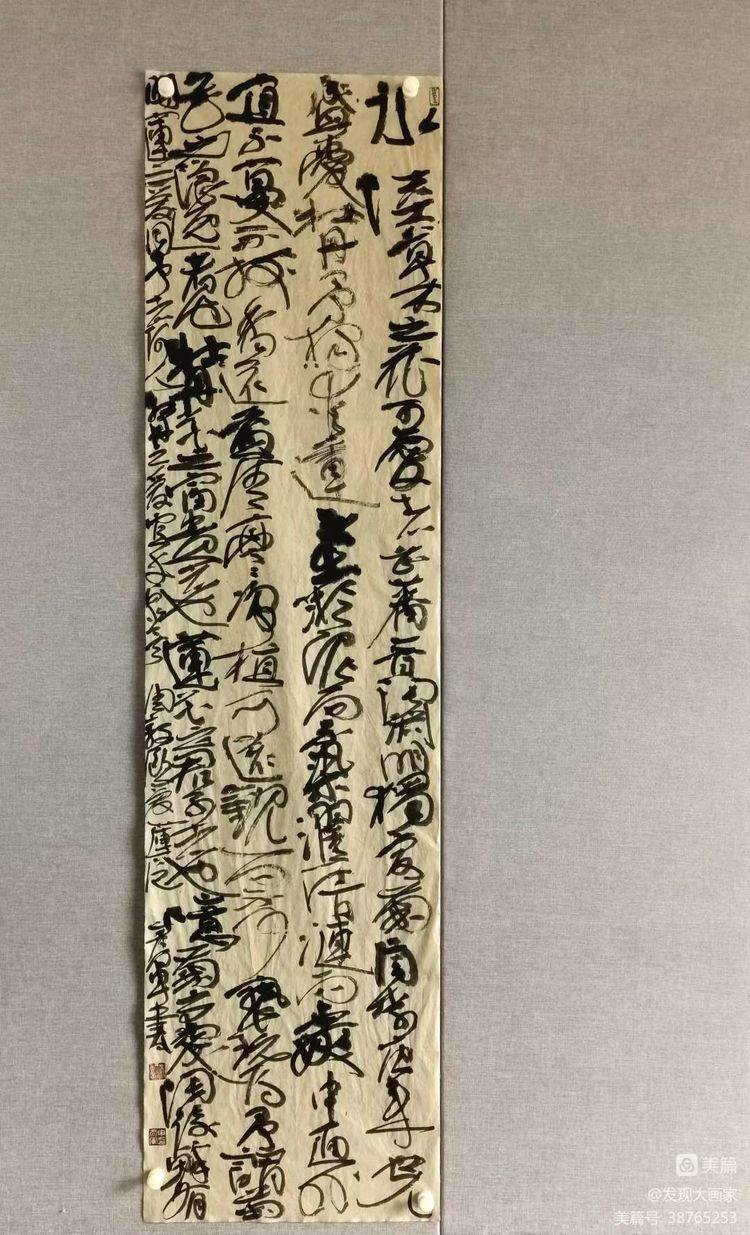 水陸草木之花可愛者甚蕃晉陶淵明獨愛菊自李唐來世人
盛愛牡丹予獨愛蓮之出淤泥而不染濯清漣而不妖中通外
直不蔓不枝香遠益清亭亭淨植可遠觀而不可褻玩焉予謂菊
花之隱逸者也牡丹花之富貴者也蓮花之君子者也噫菊之愛陶後鮮有
聞蓮之愛同予者何人牡丹之愛宜乎眾矣 周敦頤愛蓮說 書
美篇
@发现大画家
美篇号: 38765253